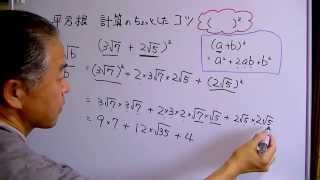 平方根 計算のちょっとしたコツ ( )²
(3√7 + 2√5)²
(a+b)²
= a² + 2ab + b²
= (3√7)² + 2×3√7×2√5 + (2√5)²
= 3√7×3√7 + 2×3×2×√7×√5 + 2√5×2√5
= 9×7 + 12×√35 + 4